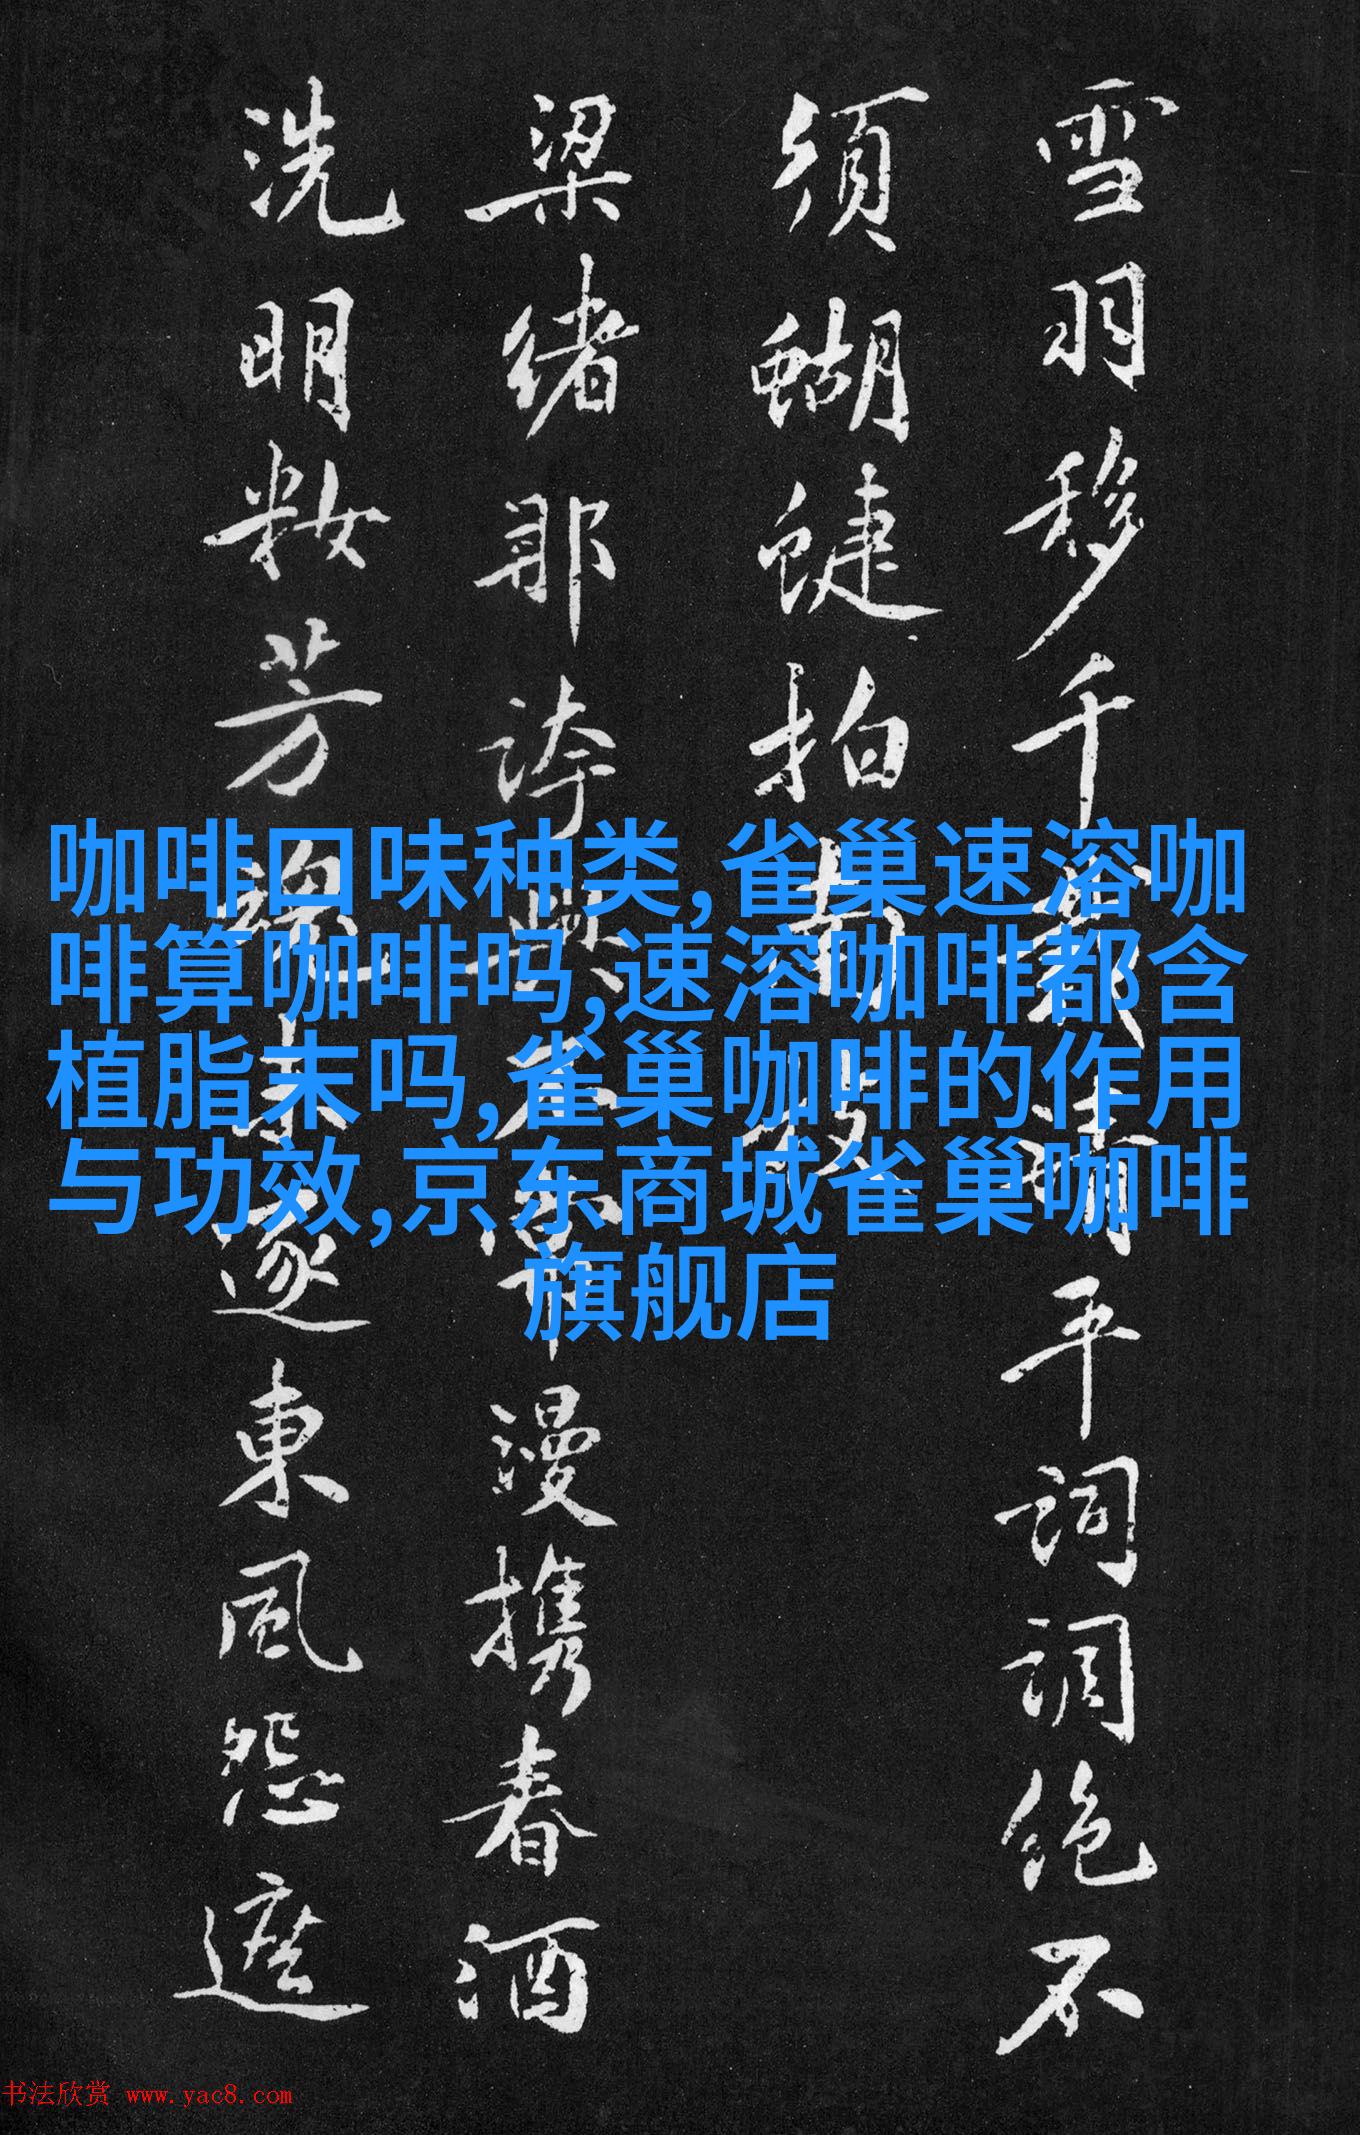 咖啡口味种类,雀巢速溶咖
啡算咖啡吗,速溶咖啡都含
植脂末吗,雀巢咖啡的作用
与功效,京东商城雀巢咖啡
旗舰店
雪羽移千平詞調絕不
須蝴蝶拍南枝
梁緒那誇興不漫攜春酒
洗明籹芳魂未逐東風怨遮
书法欣赏 www.yac8.com